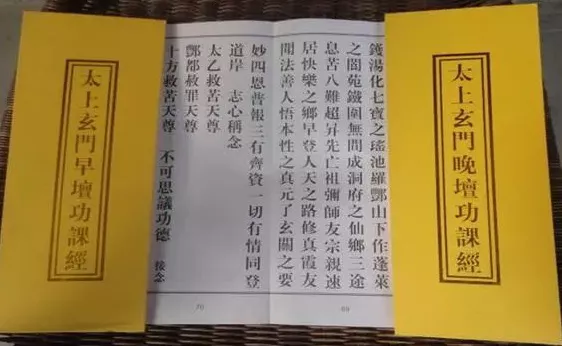 太上玄門晚壇功課經
鑊湯化七寶之瑤池羅酆山下作蓬萊
之閬苑鐵圍無間成洞府之仙鄉三途
息苦八難超昇先亡祖彌師友宗親速
居快樂之鄉早登人天之路修真霞友
聞法善人悟本性之真元了玄關之要
69
妙四恩普報三有齊資一切有情同登
道岸　志心稱念
太乙救苦天尊
酆都救罪天尊
十方救苦天尊　不可思議功德　接念
70
太上玄門早壇功課經